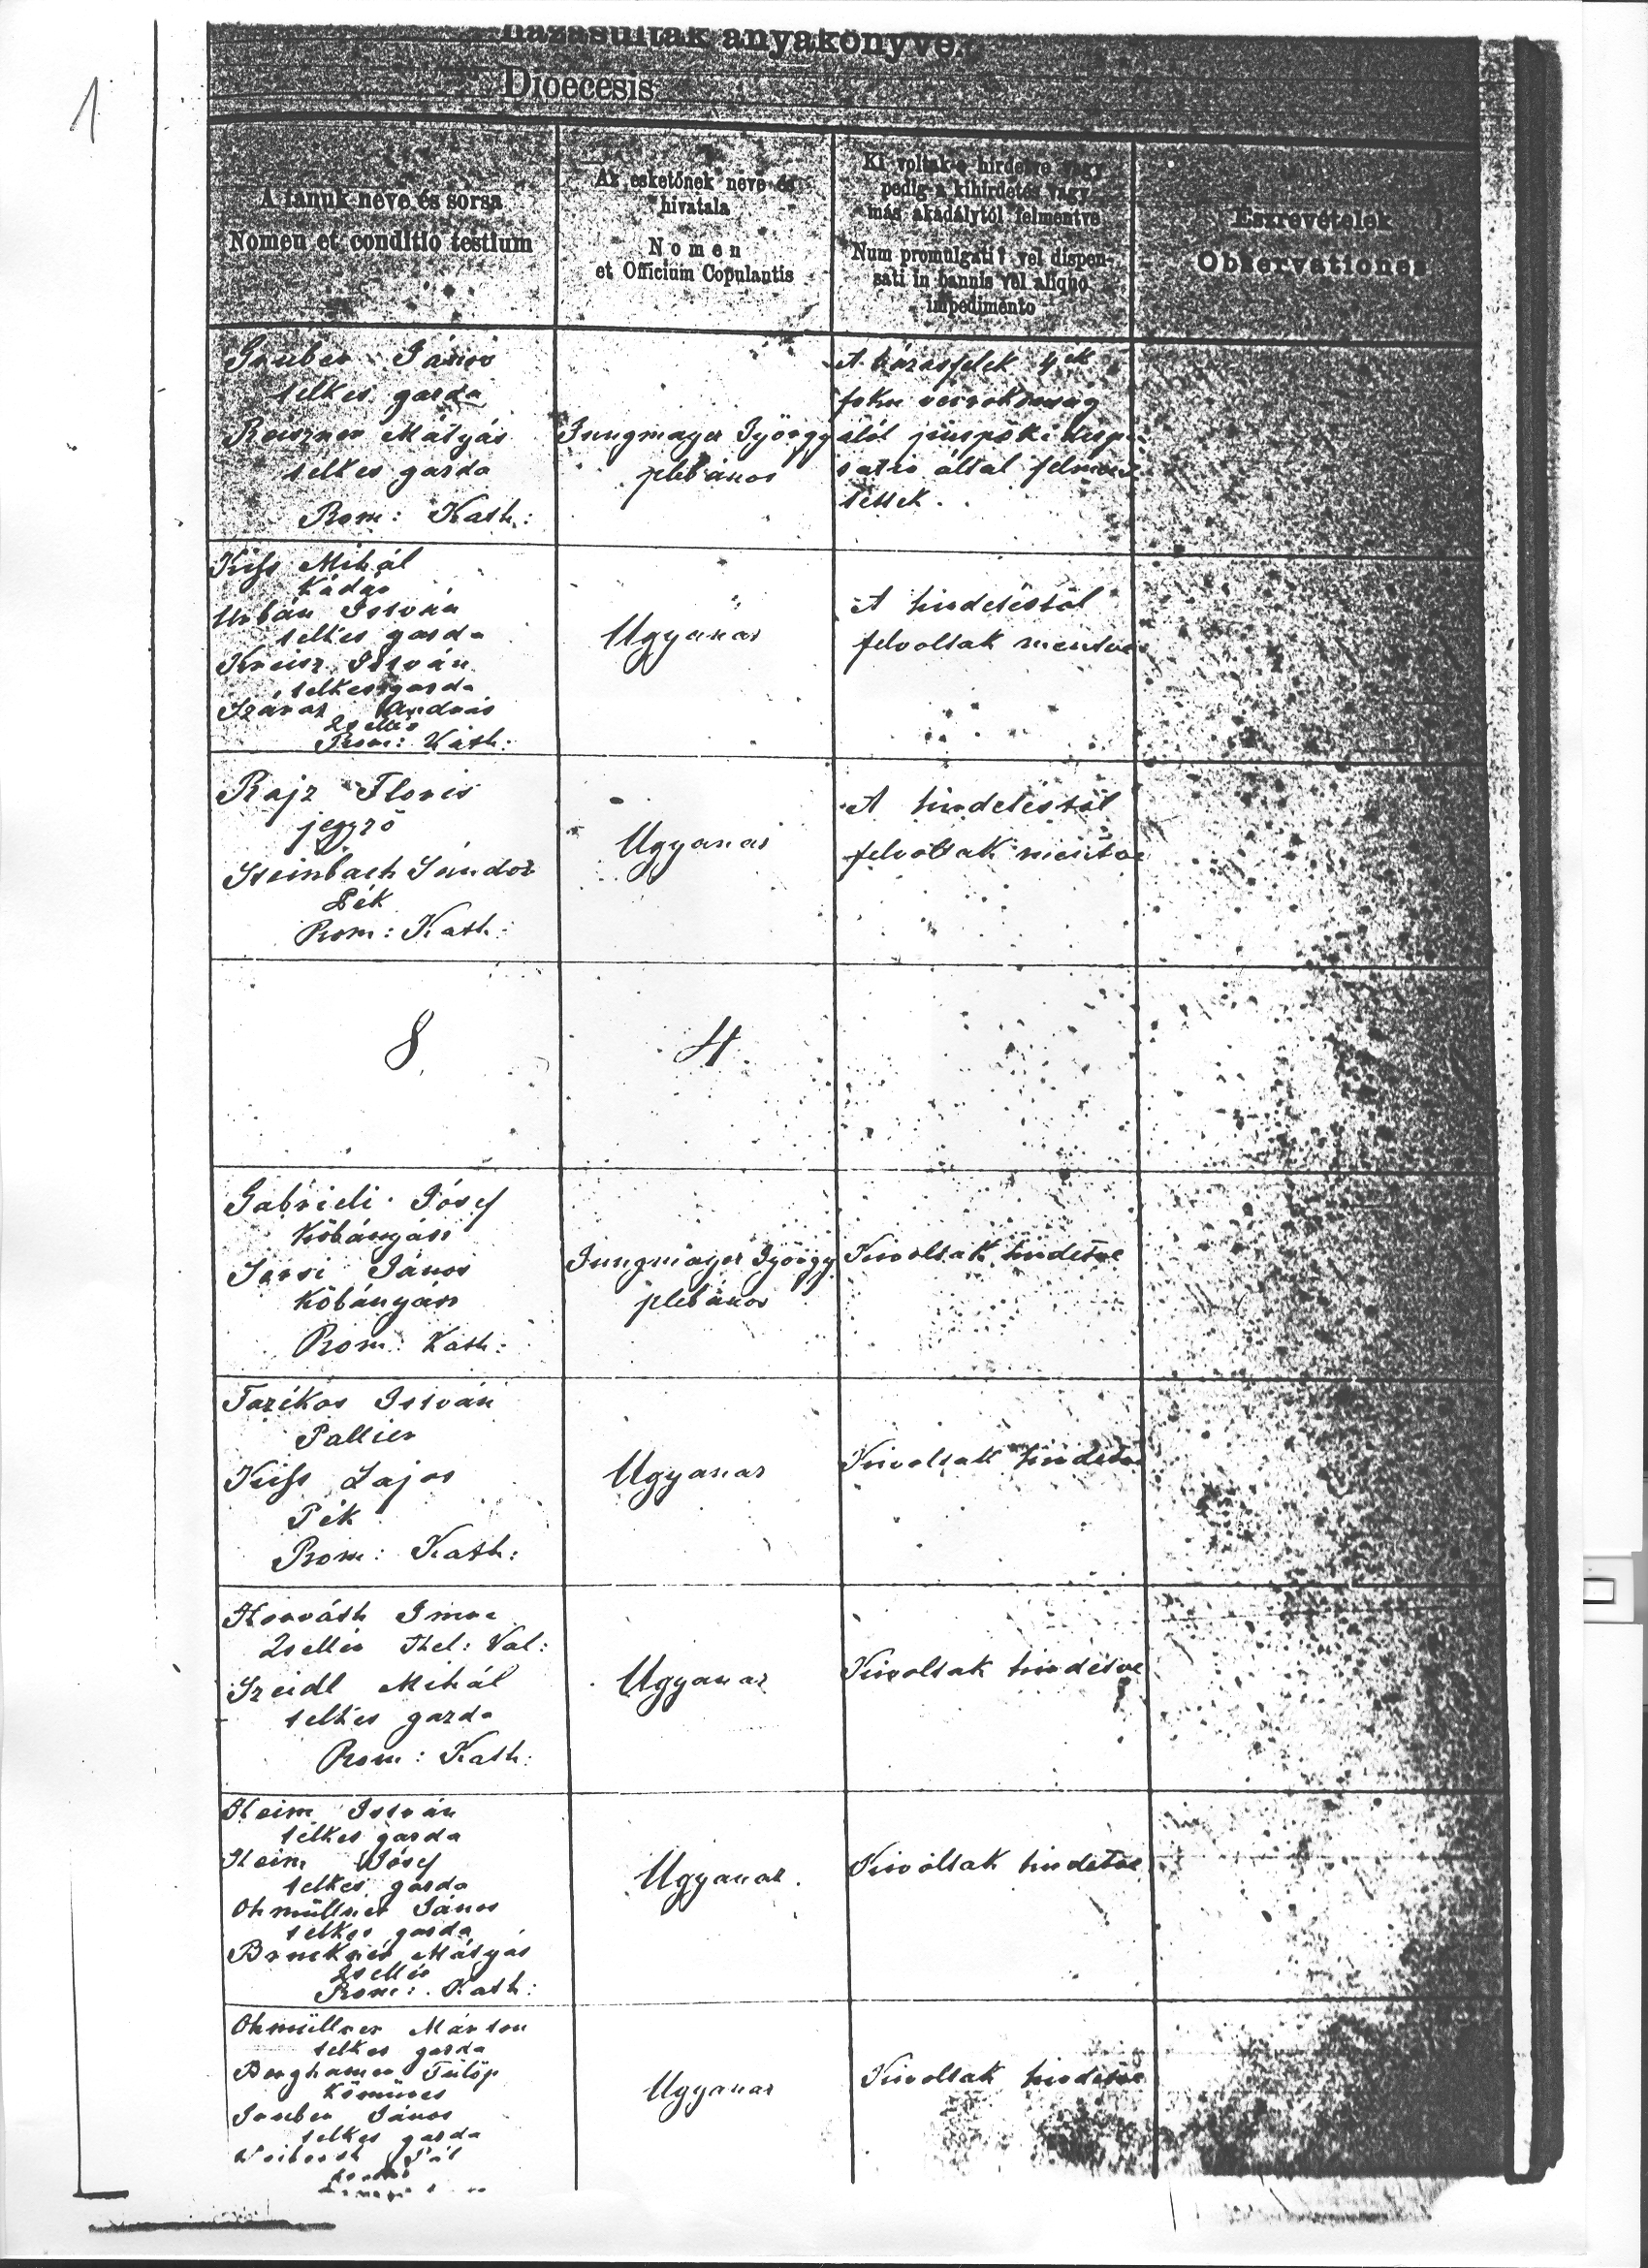 1
házasultak anyakönyve.
Dioecesis
A tanuk neve és sorsa
Nomen et conditio testium
Az esketőnek neve és
hivatala
Nomen
et Officium Copulantis
Ki voltak-e hirdetve vagy
pedig a kihirdetés vagy
más akadálytól felmentve
Num promulgati? vel dispen-
sati in bannis vel aliquo
impedimento
Észrevételek
Observationes
Gruber János
telkes gazda
Reiszner Mátyás
telkes gazda
Rom: Kath:
Jungmayer György
plebános
A házasfelek 4ik
foku vérrokonság
alól püspöki dispen
satio által felmen
tettek.
Kiss Mihál
Kádár
Urbán István
telkes gazda
Kreisz István
telkes gazda
Száraz András
Zsellér
Rom: Kath:
Ugyanaz
A hirdetéstől
felvoltak mentve
Rajz Floris
jegyző
Steinbach Sándor
Pék
Rom: Kath:
Ugyanaz
A hirdetéstől
felvoltak mentve
8
4
Gabrieli Jósef
Kőbányász
János
Kőbányász
Rom: Kath:
Jungmayer György
plebános
Kivoltak hirdetve
Fazékas István
Pallier
Kiss Lajos
Pék
Rom: Kath:
Ugyanaz
Kivoltak hirdetve
Horváth Imre
Zsellér Thel: Val:
Szeidl Mihál
telkes gazda
Rom: Kath:
Ugyanaz
Kivoltak hirdetve
Heim István
telkes gazda
Heim Jósef
telkes gazda
Ohmüllner János
telkes gazda
Bruckner Mátyás
Zsellér
Rom: Kath:
Ugyanaz.
Kivoltak hirdetve
Ohmüllner Márton
telkes gazda
Berghamer Fülöp
Kőműves
Gruber János
telkes gazda
Pál
Ugyanaz
Kivoltak hirdetve